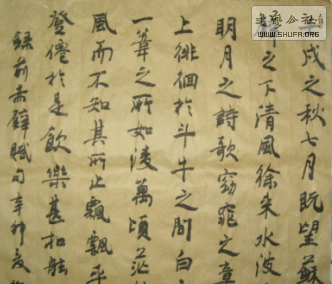 戌之秋七月既望蘇
之下清風徐来水波
明月之詩歌窈窕之章
上徘徊於斗牛之間白
一葦之所如凌萬頃茫
風而不知其所止飄飄乎
登僊於是飲樂甚扣舷
錄前赤壁賦句辛卯
書藝公社
www.SHUFA.ORG